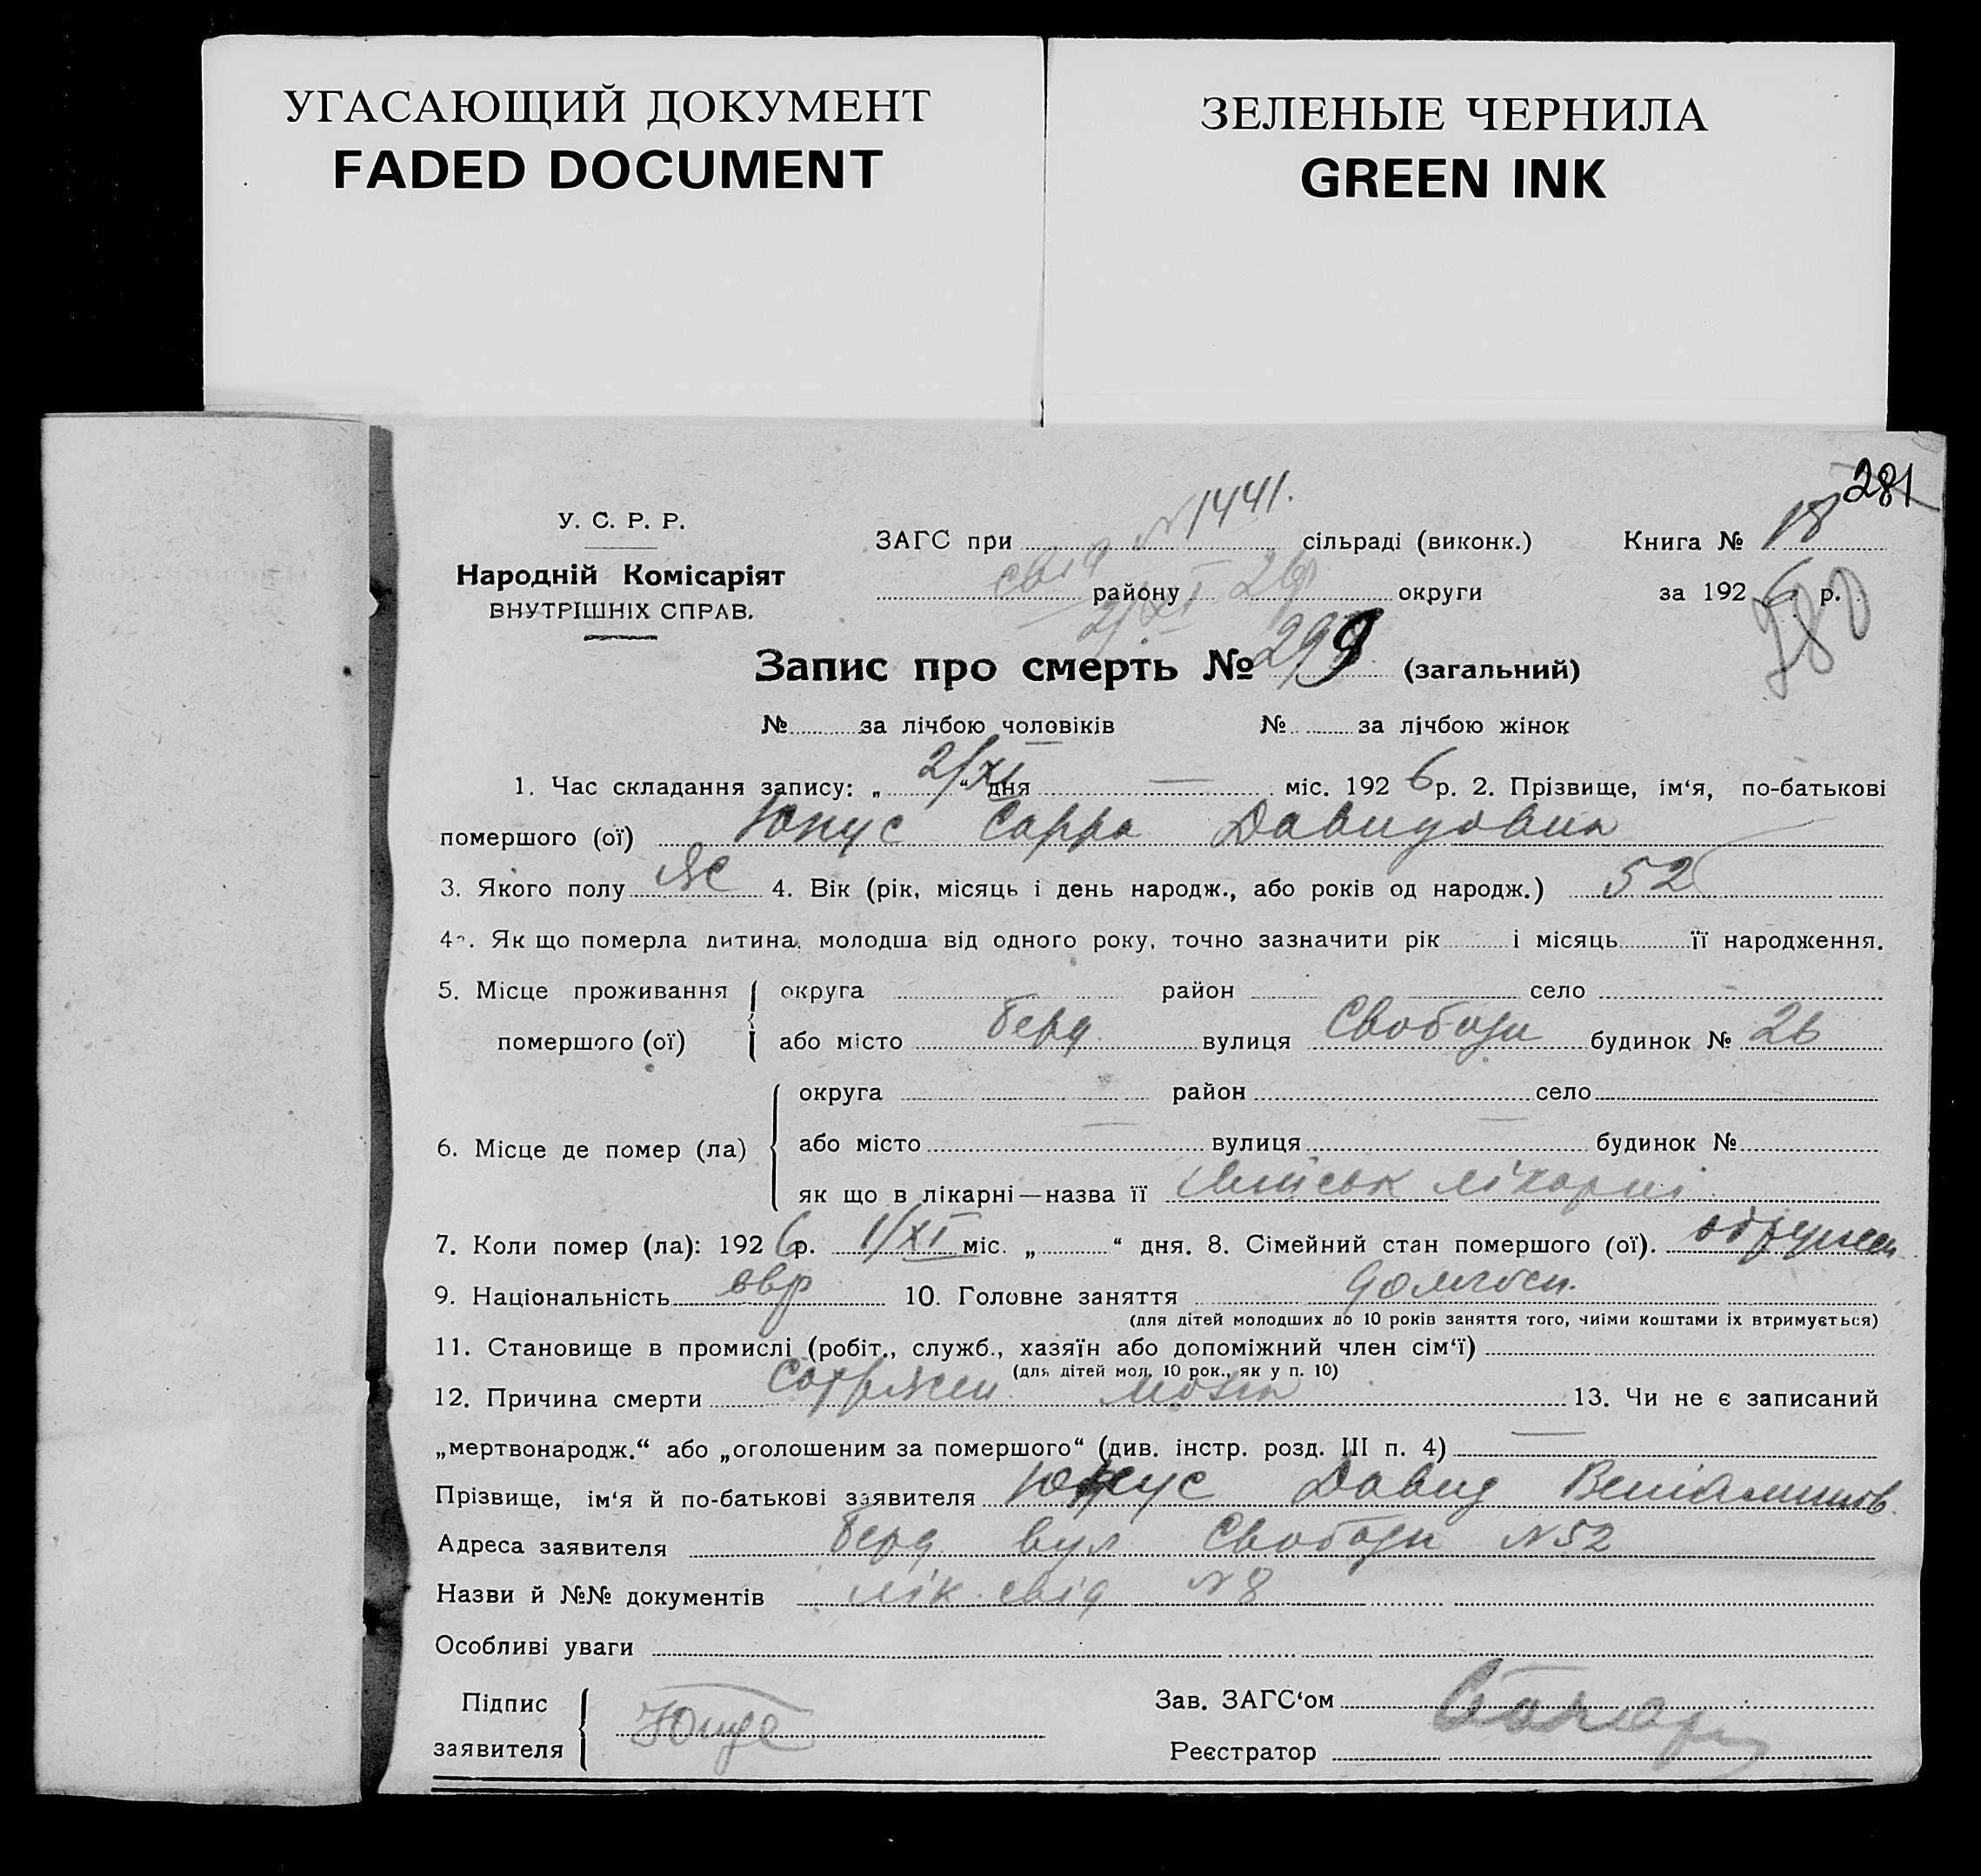 УГАСАЮЩИЙ ДОКУМЕНТ
FADED DOCUMENT
ЗЕЛЕНЫЕ ЧЕРНИЛА
GREEN INK
281
У. С. Р. Р.
Народній Комісаріят
ВНУТРІШНІХ СПРАВ.
ЗАГС при N1441. сільраді (виконк.) Книга № 18
свід району 2/XI 26 округи за 1926 р.
280
Запис про смерть № 299 (загальний)
№ за лічбою чоловіків № за лічбою жінок
1. Час складання запису: „2/XI“ дня — міс. 1926 р. 2. Прізвище, ім‘я, по-батькові
помершого (ої) Юнус Сарра Давидовна
3. Якого полу ж 4. Вік (рік, місяць і день народж., або років од народж.) 52
4а. Як що померла дитина, молодша від одного року, точно зазначити рік і місяць її народження.
5. Місце проживання помершого (ої)
округа район село
або місто Берд. вулиця Свободи будинок № 26
6. Місце де помер (ла)
округа район село
або місто — вулиця — будинок №
як що в лікарні—назва її міськ лікарні
7. Коли помер (ла): 1926 р. 1/XI міс. „ “ дня. 8. Сімейний стан помершого (ої). одружен
9. Національність евр 10. Головне заняття домгосп.
(для дітей молодших до 10 років заняття того, чиїми коштами їх втримується)
11. Становище в промислі (робіт., служб., хазяїн або допоміжний член сім‘ї)
(для дітей мол. 10 рок., як у п. 10)
12. Причина смерти 13. Чи не є записаний
„мертвонародж.“ або „оголошеним за помершого“ (див. інстр. розд. III п. 4) —
Прізвище, ім‘я й по-батькові заявителя Юнус Давид Веніаминов.
Адреса заявителя Берд. вул Свободи N52
Назви й №№ документів лік. свід N8
Особливі уваги
Підпис заявителя
Зав. ЗАГС‘ом
Реєстратор